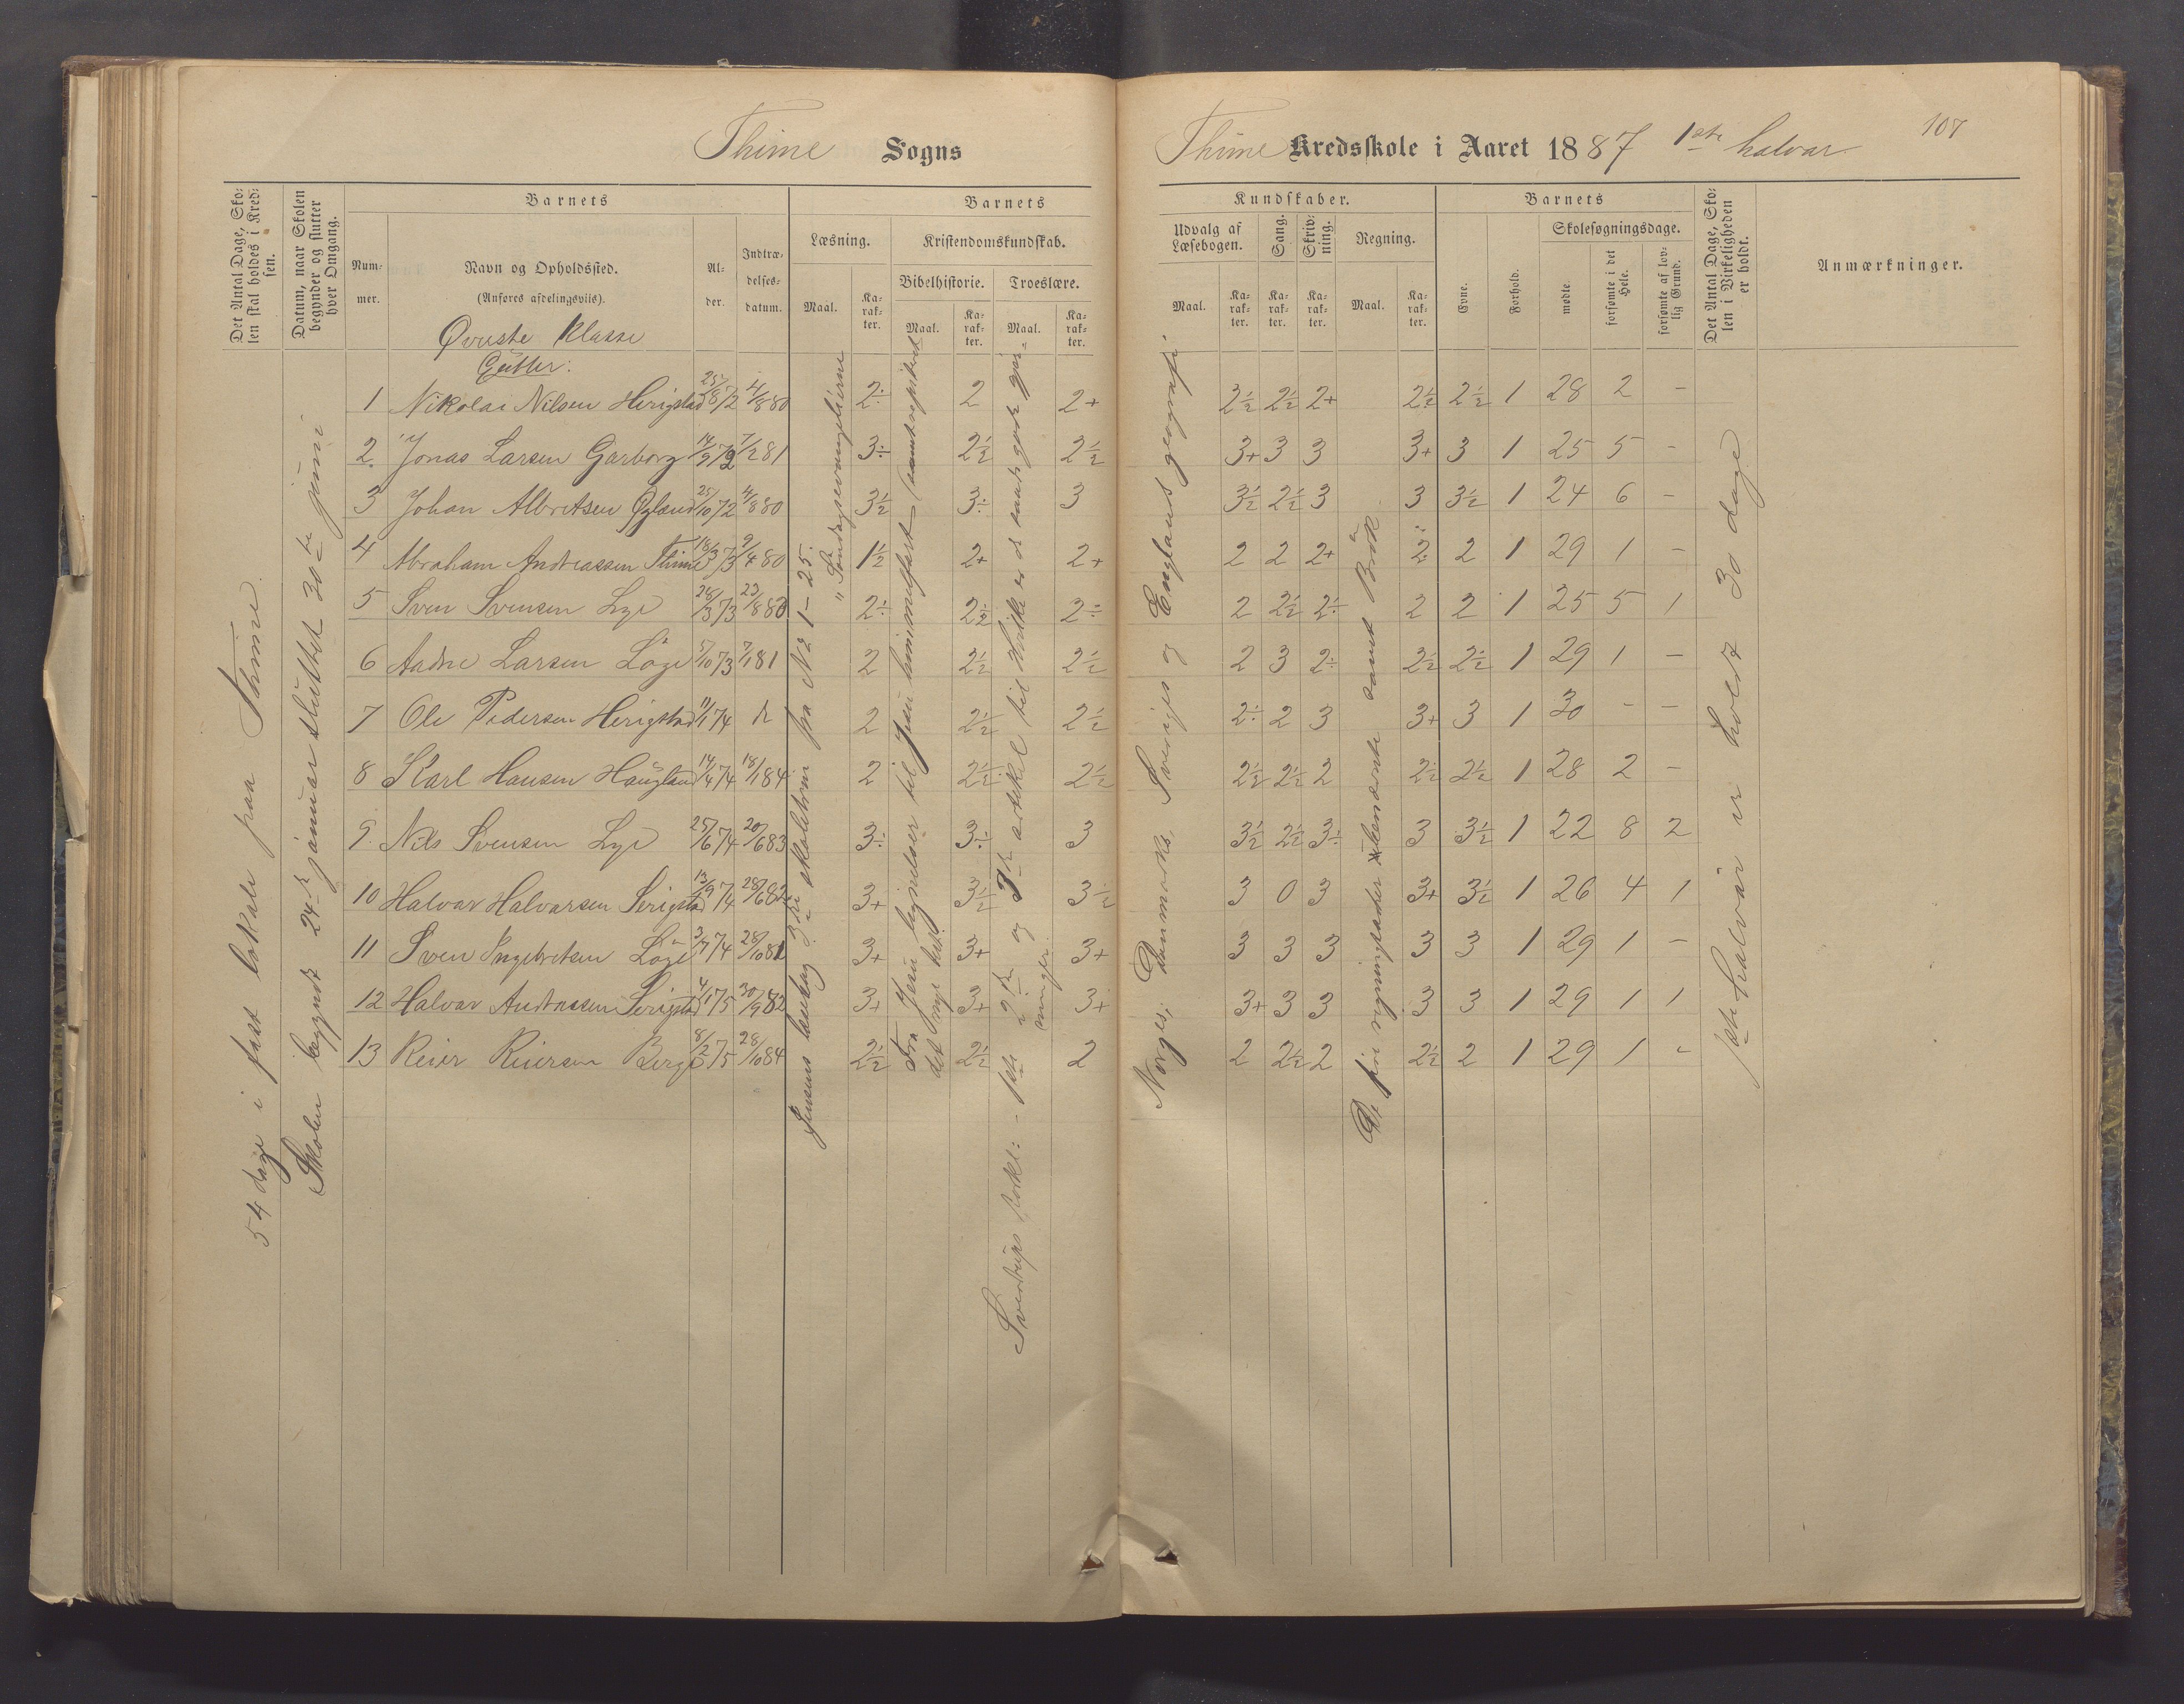 Thime Sogns
Thime Kredsskole i Aaret 1887 1ste halvar
107
Det Antal Dage, Skolen skal holdes i Kredsen.
Datum, naar Skolen begynder og slutter hver Omgang.
Barnets
Nummer.
Navn og Opholdssted.
(Anføres afdelingsviis).
Alder.
Indtrædelsesdatum.
Barnets
Læsning.
Maal.
Karakter.
Kristendomskundskab.
Bibelhistorie.
Maal.
Karakter.
Troeslære.
Maal.
Karakter.
Kundskaber.
Udvalg af Læsebogen.
Maal.
Karakter.
Sang.
Karakter.
Skrivning.
Karakter.
Regning.
Maal.
Karakter.
Barnets
Evne.
Forhold.
Skolesøgningsdage.
mødte.
forsømte i det Hele.
forsømte af lovlig Grund.
Det Antal Dage, Skolen i Virkeligheden er holdt.
Anmærkninger.
54 dage i fast lokale paa Thime.
Skolen begyndt 24de januar sluttet 30te juni
Øverste Klasse
Gutter:
1 Nikolai Nilsen Herigstad 25/8 72 4/8 80 2÷ 2 2+ 3½ 2½ 2+ 2½ 2½ 1 28 2 –
2. Jonas Larsen Garborg 14/9 72 7/2 81 3÷ 2½ 2½ 3+ 3 3 3+ 3 1 25 5 –
3 Johan Albretsen Øgland 25/10 72 4/8 80 3½ 3÷ 3 3½ 2½ 3 3 3½ 1 24 6 –
4 Abraham Andreassen Thime 18/3 73 9/4 80 1½ 2+ 2+ 2 2 2+ 2 2 1 29 1 –
5 Sven Svensen Lye 28/3 73 23/8 80 2÷ 2½ 2÷ 2 2½ 2÷ 2 2 1 25 5 1
6 Aadne Larsen Löge 5/10 73 7/1 81 2 2½ 2½ 2 3 2÷ 2½ 2½ 1 29 1 –
7 Ole Pedersen Herigstad 11/1 74 2 2½ 2½ 2÷ 2 3 3+ 3 1 30 – –
8 Karl Hansen Haugland 14/4 74 18/1 84 2 2½ 2½ 2½ 2½ 2 2½ 2½ 1 28 2 –
9. Nils Svensen Lye 25/6 74 20/6 83 3÷ 3÷ 3 3½ 2½ 3÷ 3 3½ 1 22 8 2
10 Halvar Halvarsen Serigstad 13/9 74 28/6 82 3+ 3½ 3½ 3 0 3 3+ 3½ 1 26 4 1
11 Sven Ingebretsen Löge 3/7 74 28/10 81 3+ 3+ 3+ 3 3 3 3 3 1 29 1 –
12 Halvar Andreassen Serigstad 4/1 75 30/9 82 3+ 3+ 3+ 3+ 3 3 3 3 1 29 1 1
13 Reier Reiersen Berge 8/2 75 28/10 84 2½ 2½ 2 2 2½ 2 2½ 2 1 29 1 –
Jensens læsebog 3die skoletrin fra No 1–25.
" Söndagsevangelierne
Fra Jesu lignelser til Jesu himmelfart
det nye
Sverdrups forkl: – 1ste, 2den og 3de artikel til
Norges, Danmarks, Sveriges og Englands geografi
De fire regningsarter samt Brök
1ste halvår er holdt 30 dage